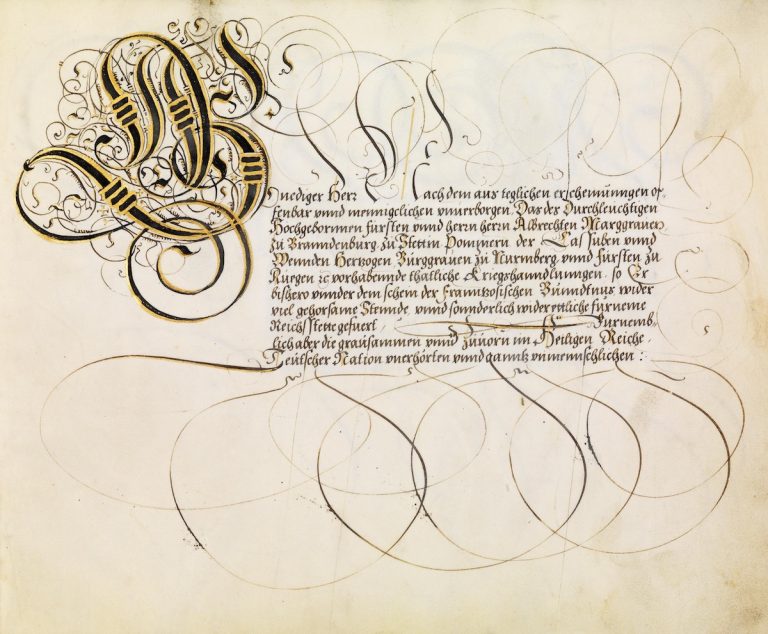 Gnediger Herr Nach dem aus teglichen erscheinungen of-
fenbar vnnd menniglichen vnuerborgen. Das des Durchleuchtigen
Hochgebornnen fursten vnnd herrn herrn Albrechten Marggrauen
zu Branndenburg zu Stettin Pommern der Cassuben vnnd
Wennden Hertzogen Burggrauen zu Nurmberg vnnd fursten zu
Ruegen ꝛc vorhabennde thatliche Kriegshanndlunngen. so Er
bishero vnnder dem schein der Franntzosischen Bünndtnus wider
viel gehorsame Stennde vnnd sonnderlich wider etliche fürneme
Reichs Stette gefuert / Furnemb-
lich aber die grausammen vnnd zuuorn im Heiligen Reiche
Teutscher Nation vnerhörten vnnd ganntz vnmennschlichen :